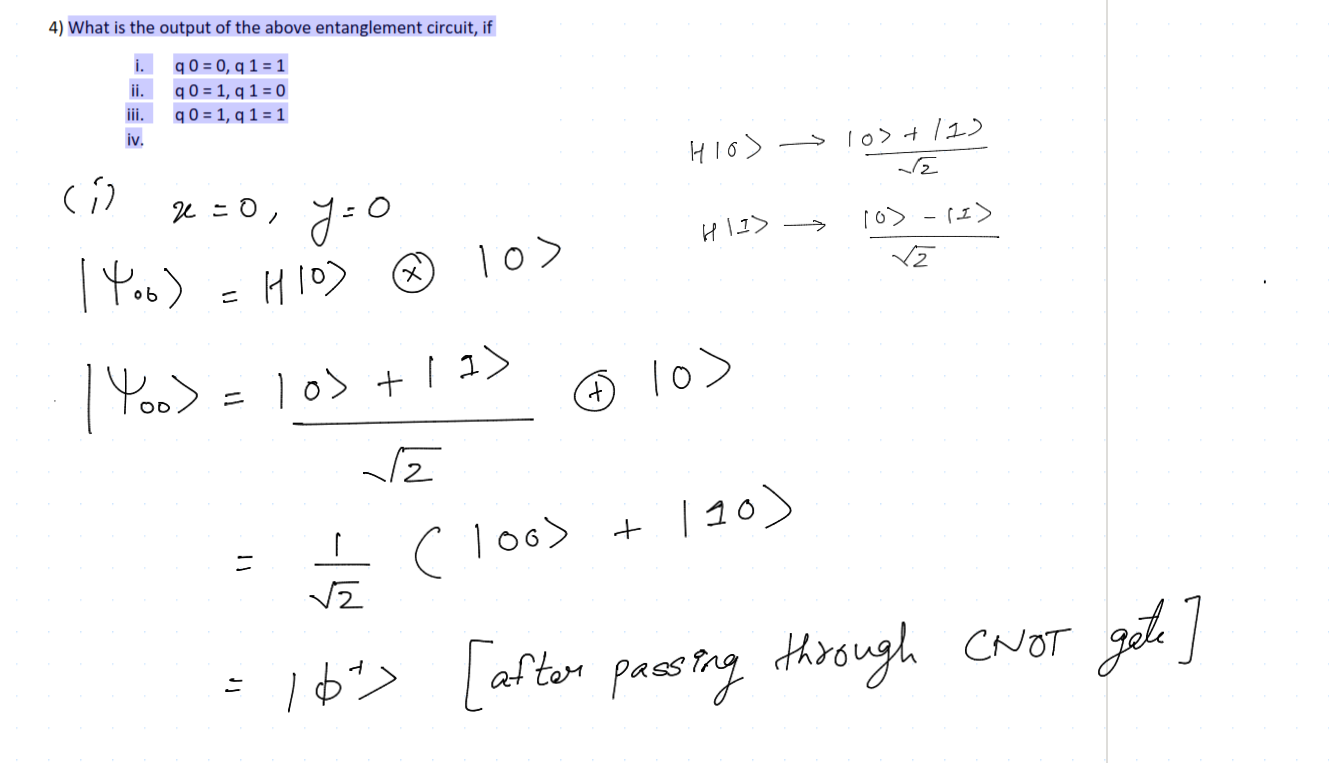 4) What is the output of the above entanglement circuit, if
i. q 0 = 0, q 1 = 1
ii. q 0 = 1, q 1 = 0
iii. q 0 = 1, q 1 = 1
iv.
H|0> → |0> + |1> / √2
H|1> → |0> - |1> / √2
(i) x = 0, y = 0
|Ψ₀₀> = H|0> ⊗ |0>
|Ψ₀₀> = |0> + |1> / √2 ⊕ |0>
= 1/√2 ( |00> + |10>
= |ϕ⁺> [after passing through CNOT gate]